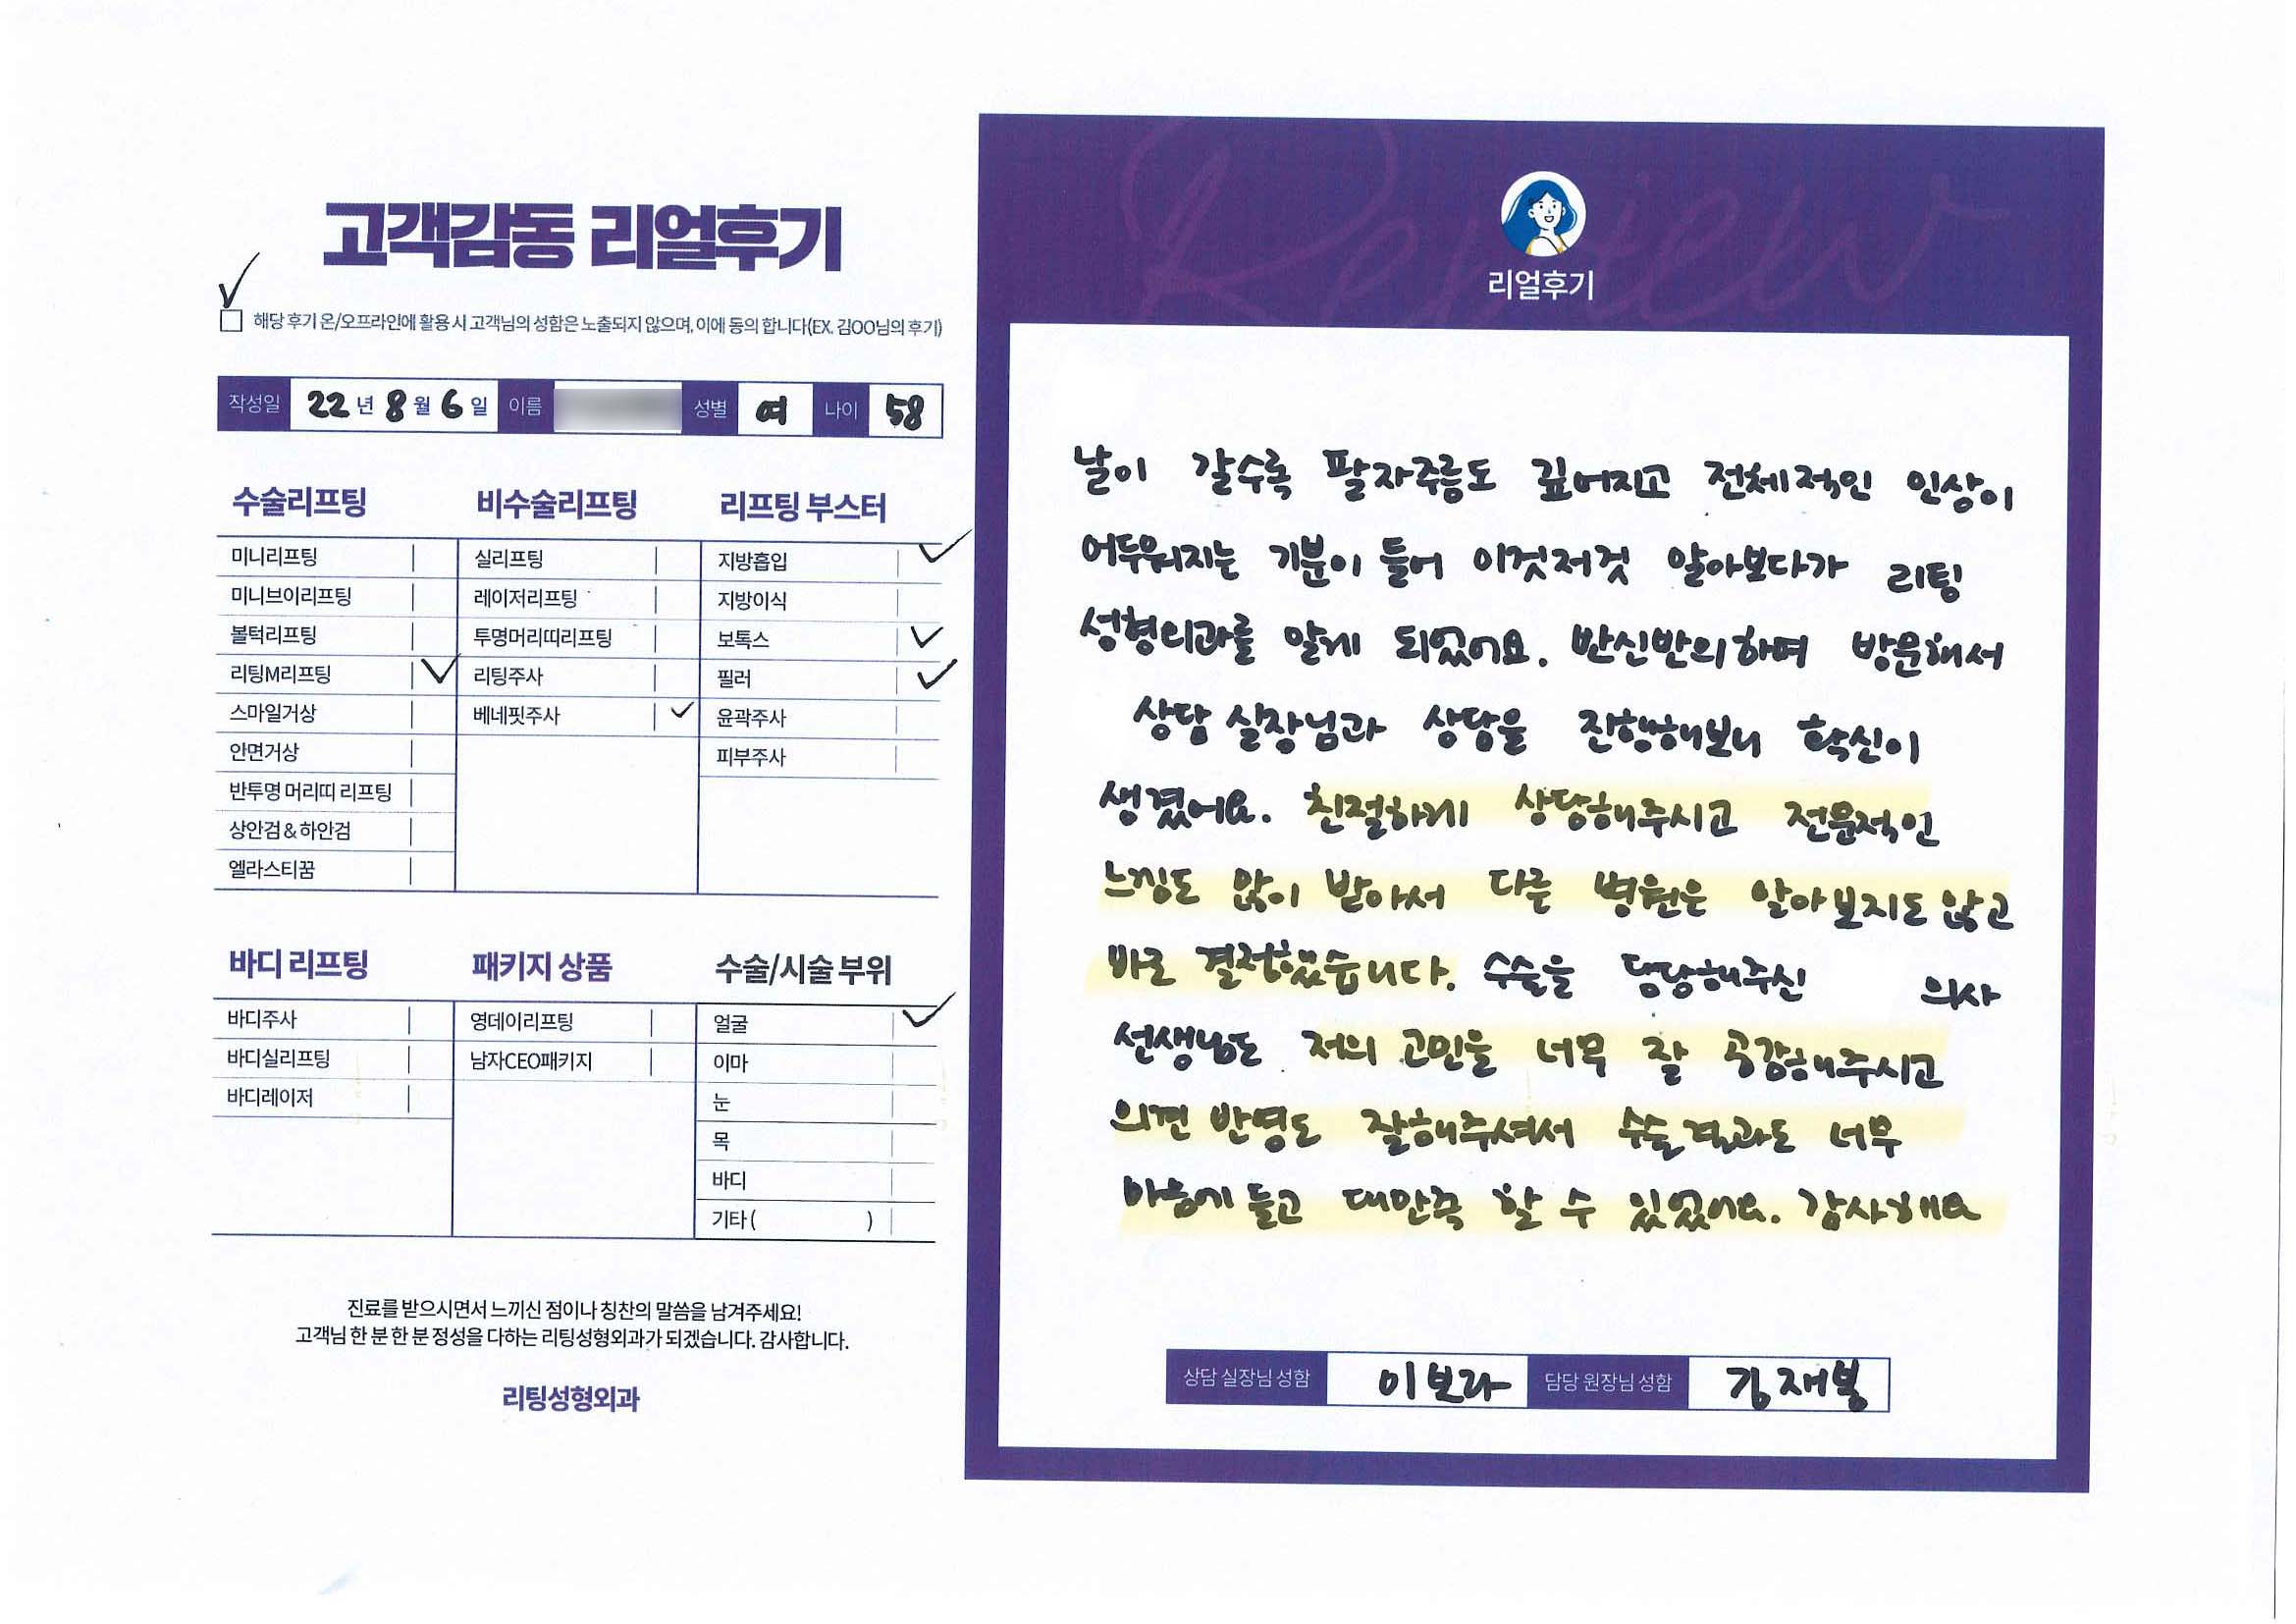 고객감동 리얼후기
해당 후기 온/오프라인에 활용 시 고객님의 성함은 노출되지 않으며, 이에 동의 합니다(EX. 김OO님의 후기)
작성일 22년 8월 6일 이름 성별 여 나이 58
수술리프팅
미니리프팅
미니브이리프팅
볼턱리프팅
리팅M리프팅
스마일거상
안면거상
반투명 머리띠 리프팅
상안검&하안검
엘라스티꿈
비수술리프팅
실리프팅
레이저리프팅
투명머리띠리프팅
리팅주사
베네핏주사
리프팅 부스터
지방흡입
지방이식
보톡스
필러
윤곽주사
피부주사
바디 리프팅
바디주사
바디실리프팅
바디레이저
패키지 상품
영데이리프팅
남자CEO패키지
수술/시술 부위
얼굴
이마
눈
목
바디
기타 ( )
진료를 받으시면서 느끼신 점이나 칭찬의 말씀을 남겨주세요!
고객님 한 분 한 분 정성을 다하는 리팅성형외과가 되겠습니다. 감사합니다.
리팅성형외과
Review
리얼후기
날이 갈수록 팔자주름도 깊어지고 전체적인 인상이
어두워지는 기분이 들어 이것저것 알아보다가 리팅
성형외과를 알게 되었어요. 반신반의하며 방문해서
상담 실장님과 상담을 진행해보니 확신이
생겼어요. 친절하게 상담해주시고 전문적인
느낌도 많이 받아서 다른 병원은 알아보지도 않고
바로 결정했습니다. 수술을 담당해주신 의사
선생님도 저의 고민을 너무 잘 공감해주시고
의견 반영도 잘해주셔서 수술결과도 너무
마음에 들고 대만족 할 수 있었어요. 감사해요
상담 실장님 성함 이보라 담당 원장님 성함 김재봉